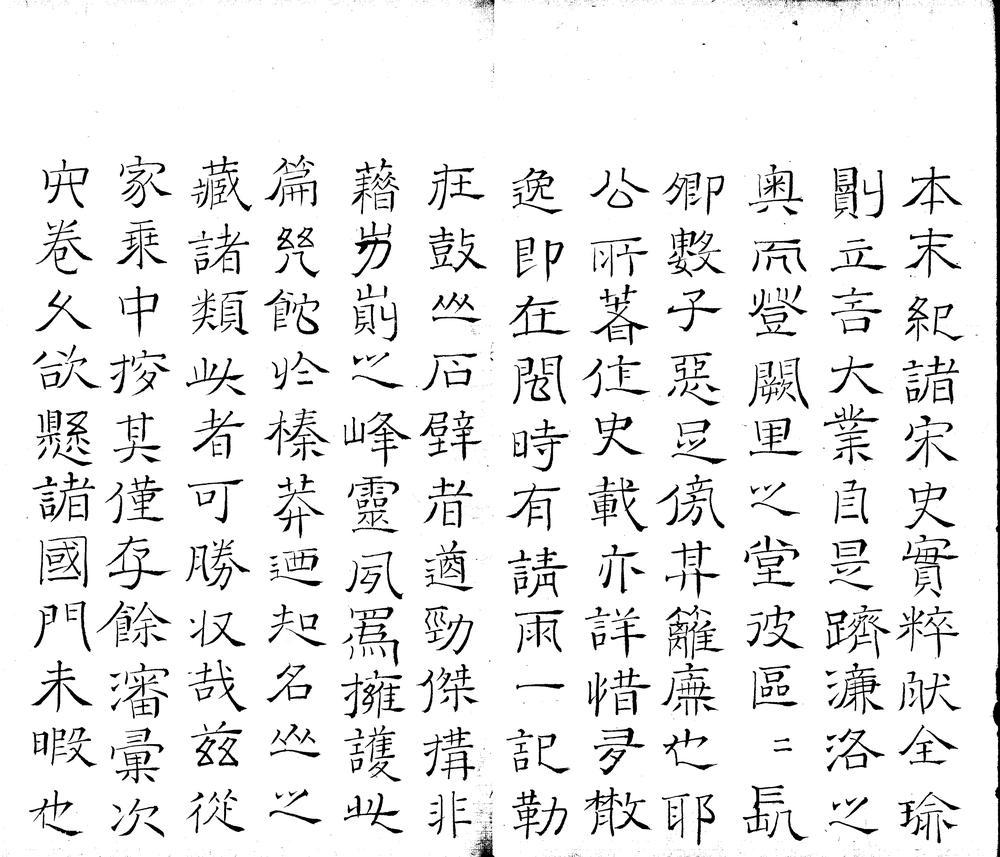 本末紀諸宋史實粹肰全瑜
則立言大業自是躋濂洛之
奧而登闕里之堂彼區二長
卿數子惡足傍其籬廡也耶
公所著作史載亦詳惜多散
逸即在閩時有請雨一記勒
在鼓山石壁者遒勁傑搆非
藉屴崱之峰靈夙爲擁護此
篇幾飽於榛莽廼知名山之
藏諸類此者可勝収哉茲從
家乗中搜其僅存餘瀋彙次
六卷久欲懸諸國門未暇也